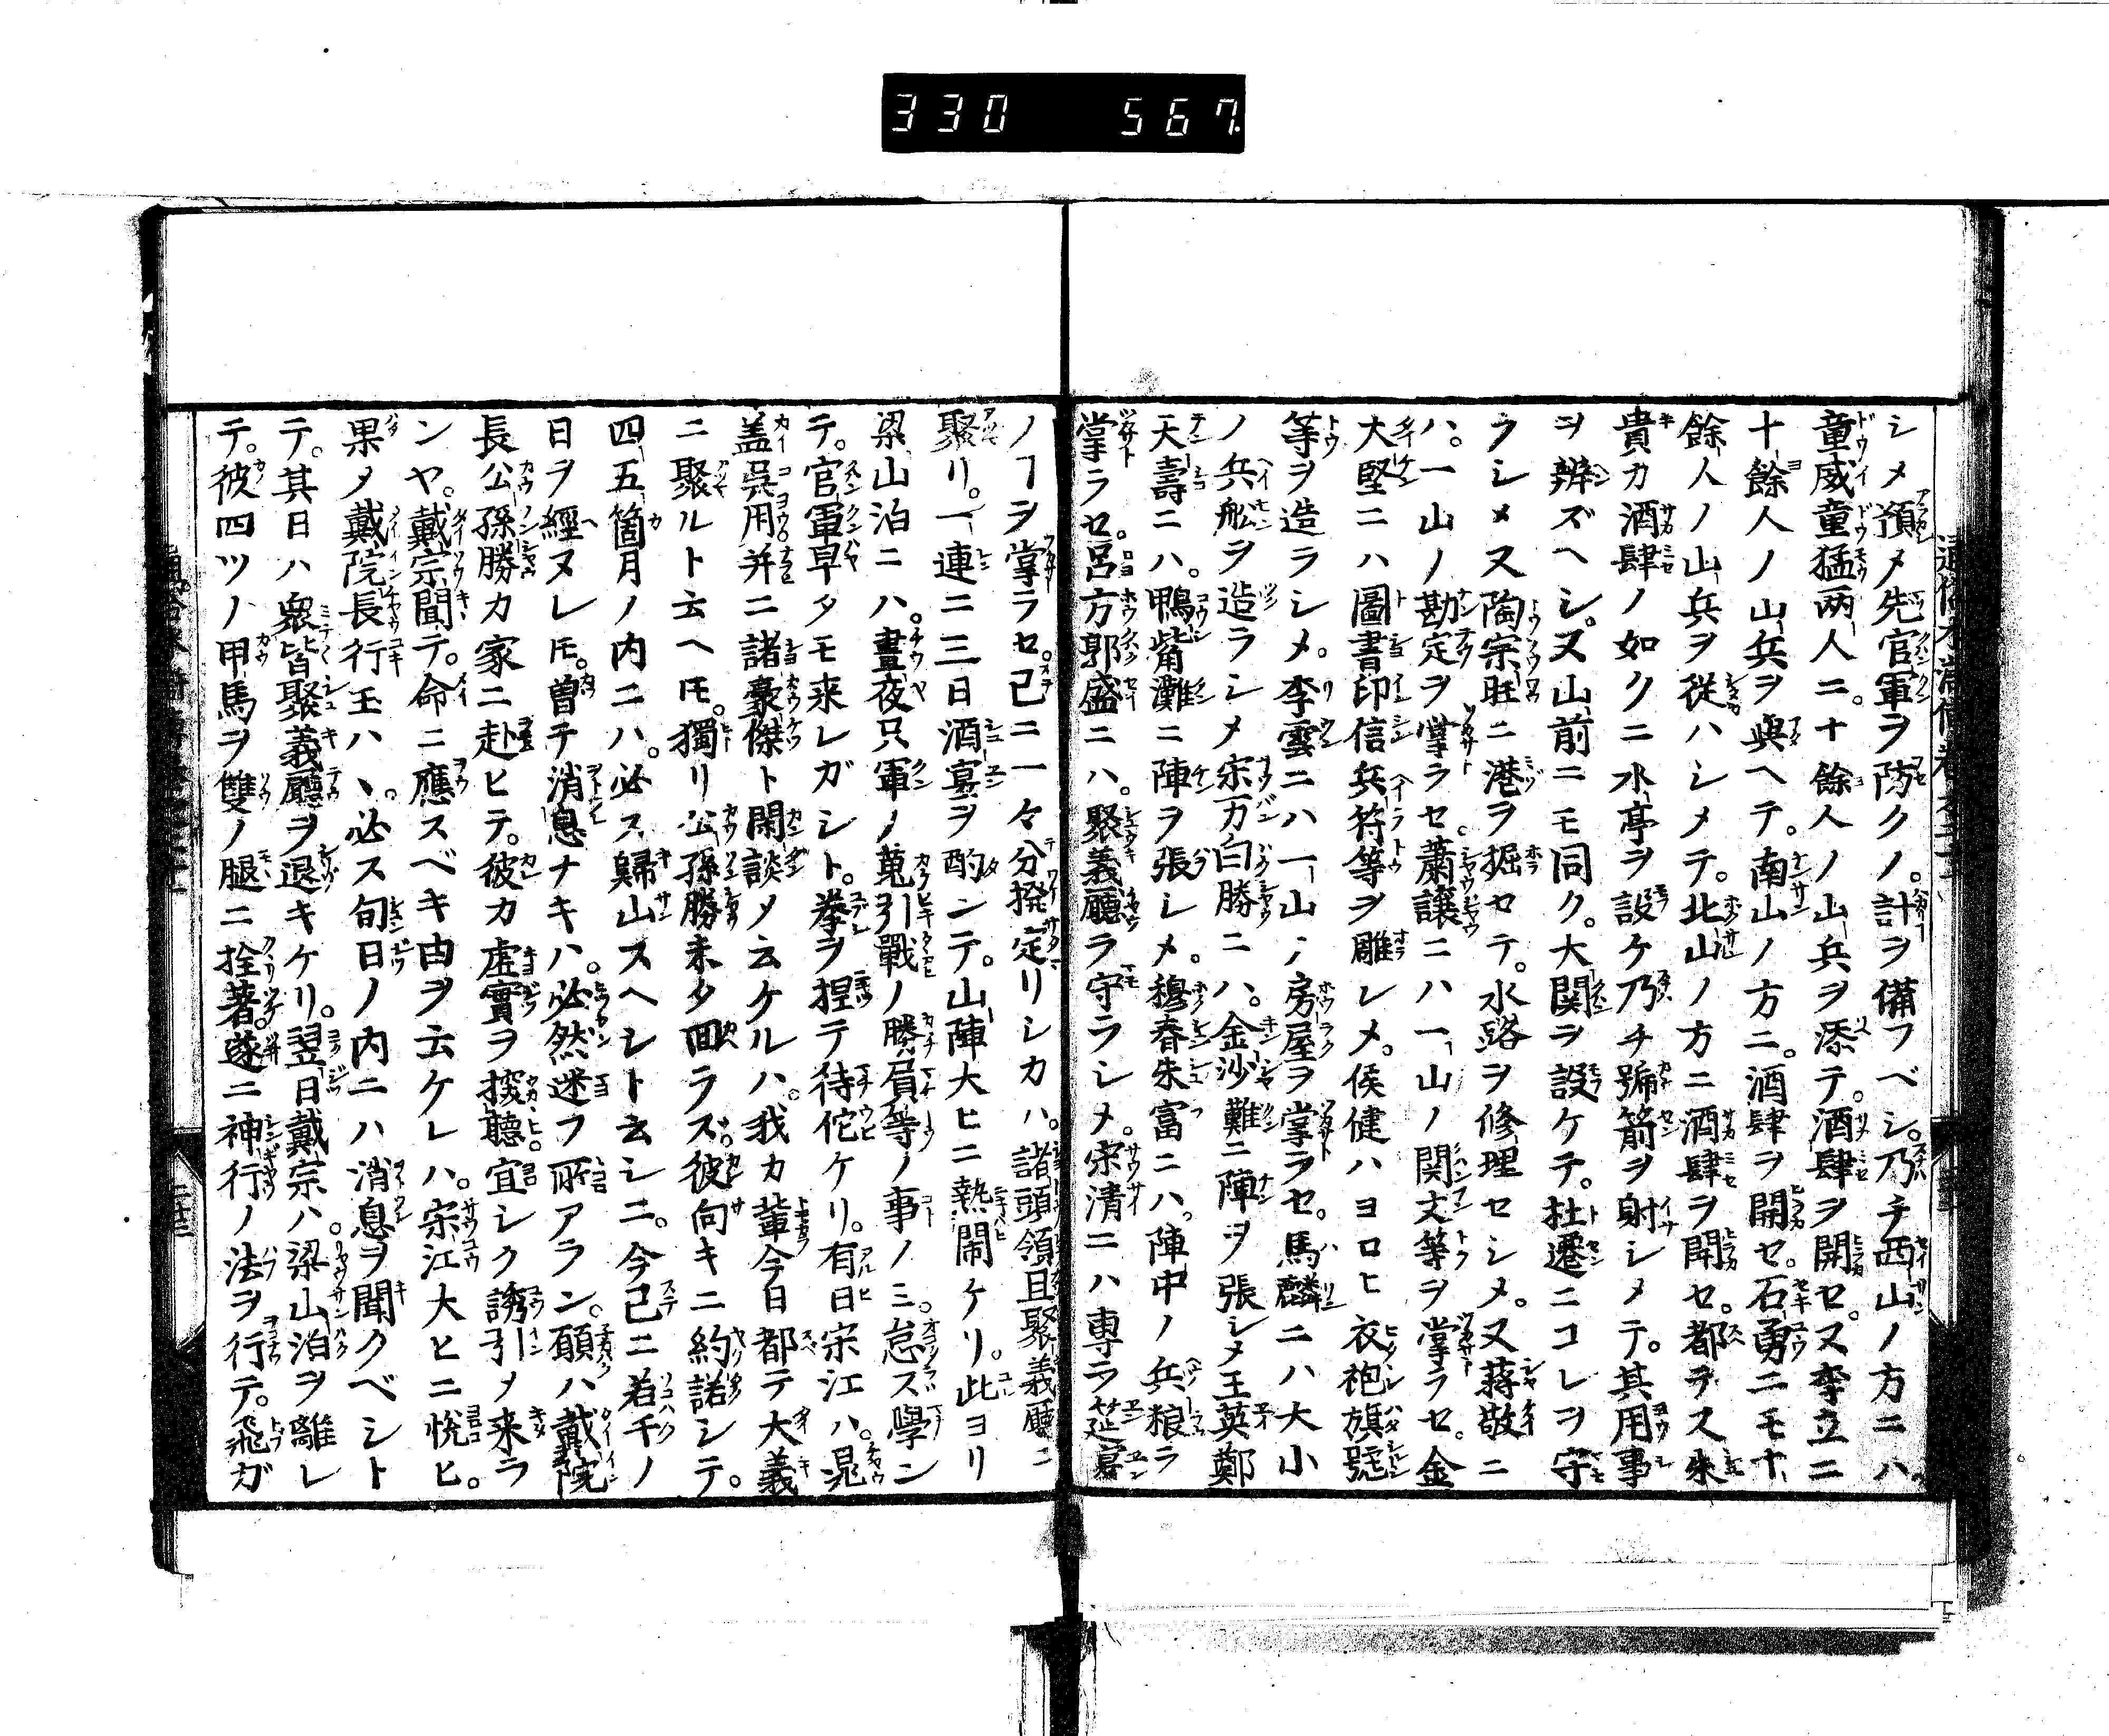 330 567
シメ預メ先官軍ヲ防クノ。計ヲ備フベシ。乃チ西山ノ方ニハ。
童威童猛两人ニ。十餘人ノ山兵ヲ添テ。酒肆ヲ開セ。又李立ニ
十餘人ノ山兵ヲ與ヘテ。南山ノ方ニ。酒肆ヲ開セ。石勇ニモ十
餘人ノ山兵ヲ從ハシメテ。北山ノ方ニ酒肆ヲ開セ。都テ又朱
貴カ酒肆ノ如クニ水亭ヲ設ケ乃チ號箭ヲ射シメテ。其用事
ヲ辨ズヘシ。又山前ニモ同ク。大関ヲ設ケテ。杜遷ニコレヲ守
ラシメ又陶宗旺ニ港ヲ掘セテ。水路ヲ修理セシメ。又蒋敬ニ
ハ。一山ノ勘定ヲ掌ラセ。蕭讓ニハ一山ノ関文等ヲ掌ラセ。金
大堅ニハ圖書印信兵符等ヲ雕レメ。侯健ハヨロヒ衣袍旗號
等ヲ造ラシメ。李雲ニハ一山ノ房屋ヲ掌ラセ。馬麟ニハ大小
ノ兵舩ヲ造ラシメ宋万白勝ニハ。金沙難ニ陣ヲ張シメ王英鄭
天壽ニハ。鴨觜灘ニ陣ヲ張レメ。穆春朱富ニハ。陣中ノ兵粮ラ
掌ラセ。呂方郭盛ニハ。聚義廳ラ守ラシメ。宋清ニハ専ラ筵宴
ノヿヲ掌ラセ。己ニ一々分撥定リシカハ。諸頭領且聚義廳ニ
聚リ。一連ニ三日酒宴ヲ酌ンテ。山陣大ヒニ熱鬧ケリ。此ヨリ
梁山泊ニハ。晝夜只軍ノ蒐引戰ノ勝屓等ノ事ノミ。怠ス學ン
テ。官軍早タモ来レガシト。拳ヲ捏テ待佗ケリ。有日宋江ハ。晁
盖呉用。并ニ諸豪傑ト閑談メ云ケルハ。我カ輩今日都テ大義
ニ聚ルト云ヘ𪜈。獨リ公孫勝未タ回ラズ。彼向キニ約諾シテ。
四五箇月ノ内ニハ。必ス歸山スヘシト云シニ。今己ニ若千ノ
日ヲ經ヌレ𪜈。曽テ消息ナキハ。必然迷フ所アラン。願ハ戴院
長公孫勝カ家ニ赴ヒテ。彼カ虚實ヲ探聽。宜レク誘引メ来ラ
ンヤ。戴宗聞テ。命ニ應スベキ由ヲ云ケレハ。宋江大ヒニ悦ヒ。
果メ戴院長行玉ハヽ。必ス旬日ノ内ニハ消息ヲ聞クベシト
テ。其日ハ衆皆聚義廳ヲ退キケリ。翌日戴宗ハ。梁山泊ヲ離レ
テ。彼四ツノ甲馬ヲ雙ノ腿ニ拴著。遂ニ神行ノ法ヲ行テ。飛ガ